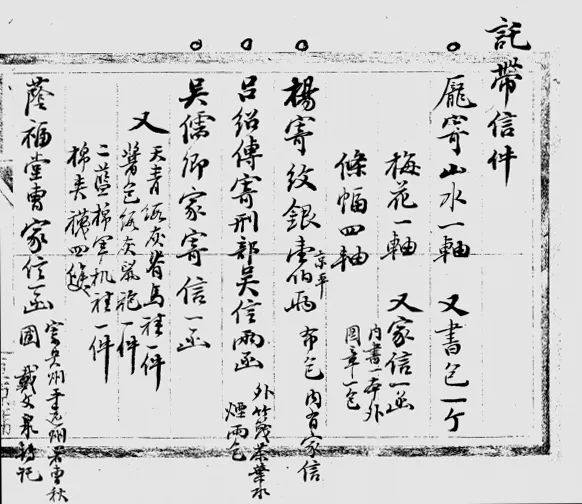 託帶信件
龎寄山水一軸 又書包一个
梅花一軸 又家信一函
內書一本外
圖章一包
條幅四軸
楊寄紋銀壹伯兩 京平 布包 內有家信
呂紹傳寄刑部吳信兩函 外竹箋茶葉
煙兩包
吳儒卿家寄信一函
又 天青 灰脊馬褂一件
醬色 灰鼠袍一件
二藍棉軍机褂一件
棉夾襪四雙
蔭福堂曹家信一函
戴文泉